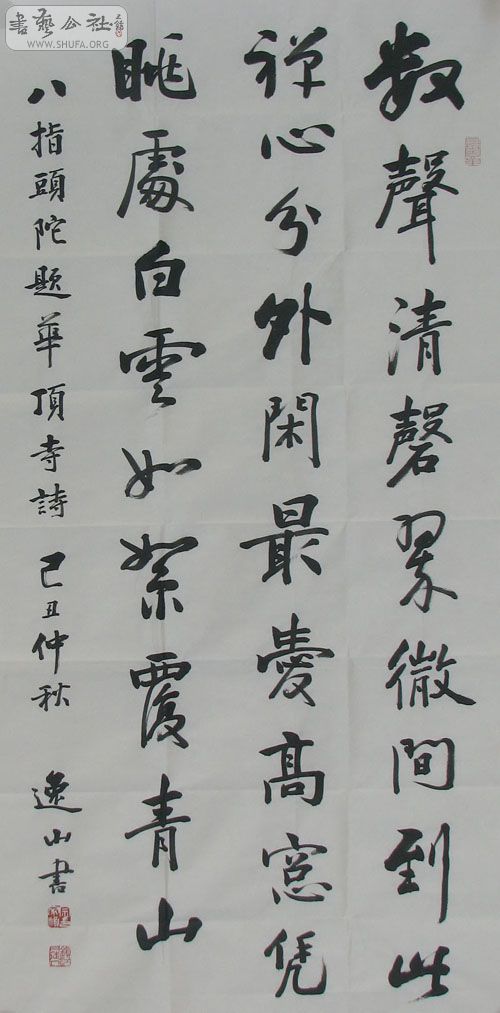 数聲清磬翠微間到此
禅心分外閑最愛高窓凭
眺處白雲如絮覆青山
八指頭陀題華頂寺詩 己丑仲秋 逸山書
書藝公社
WWW.SHUFA.ORG